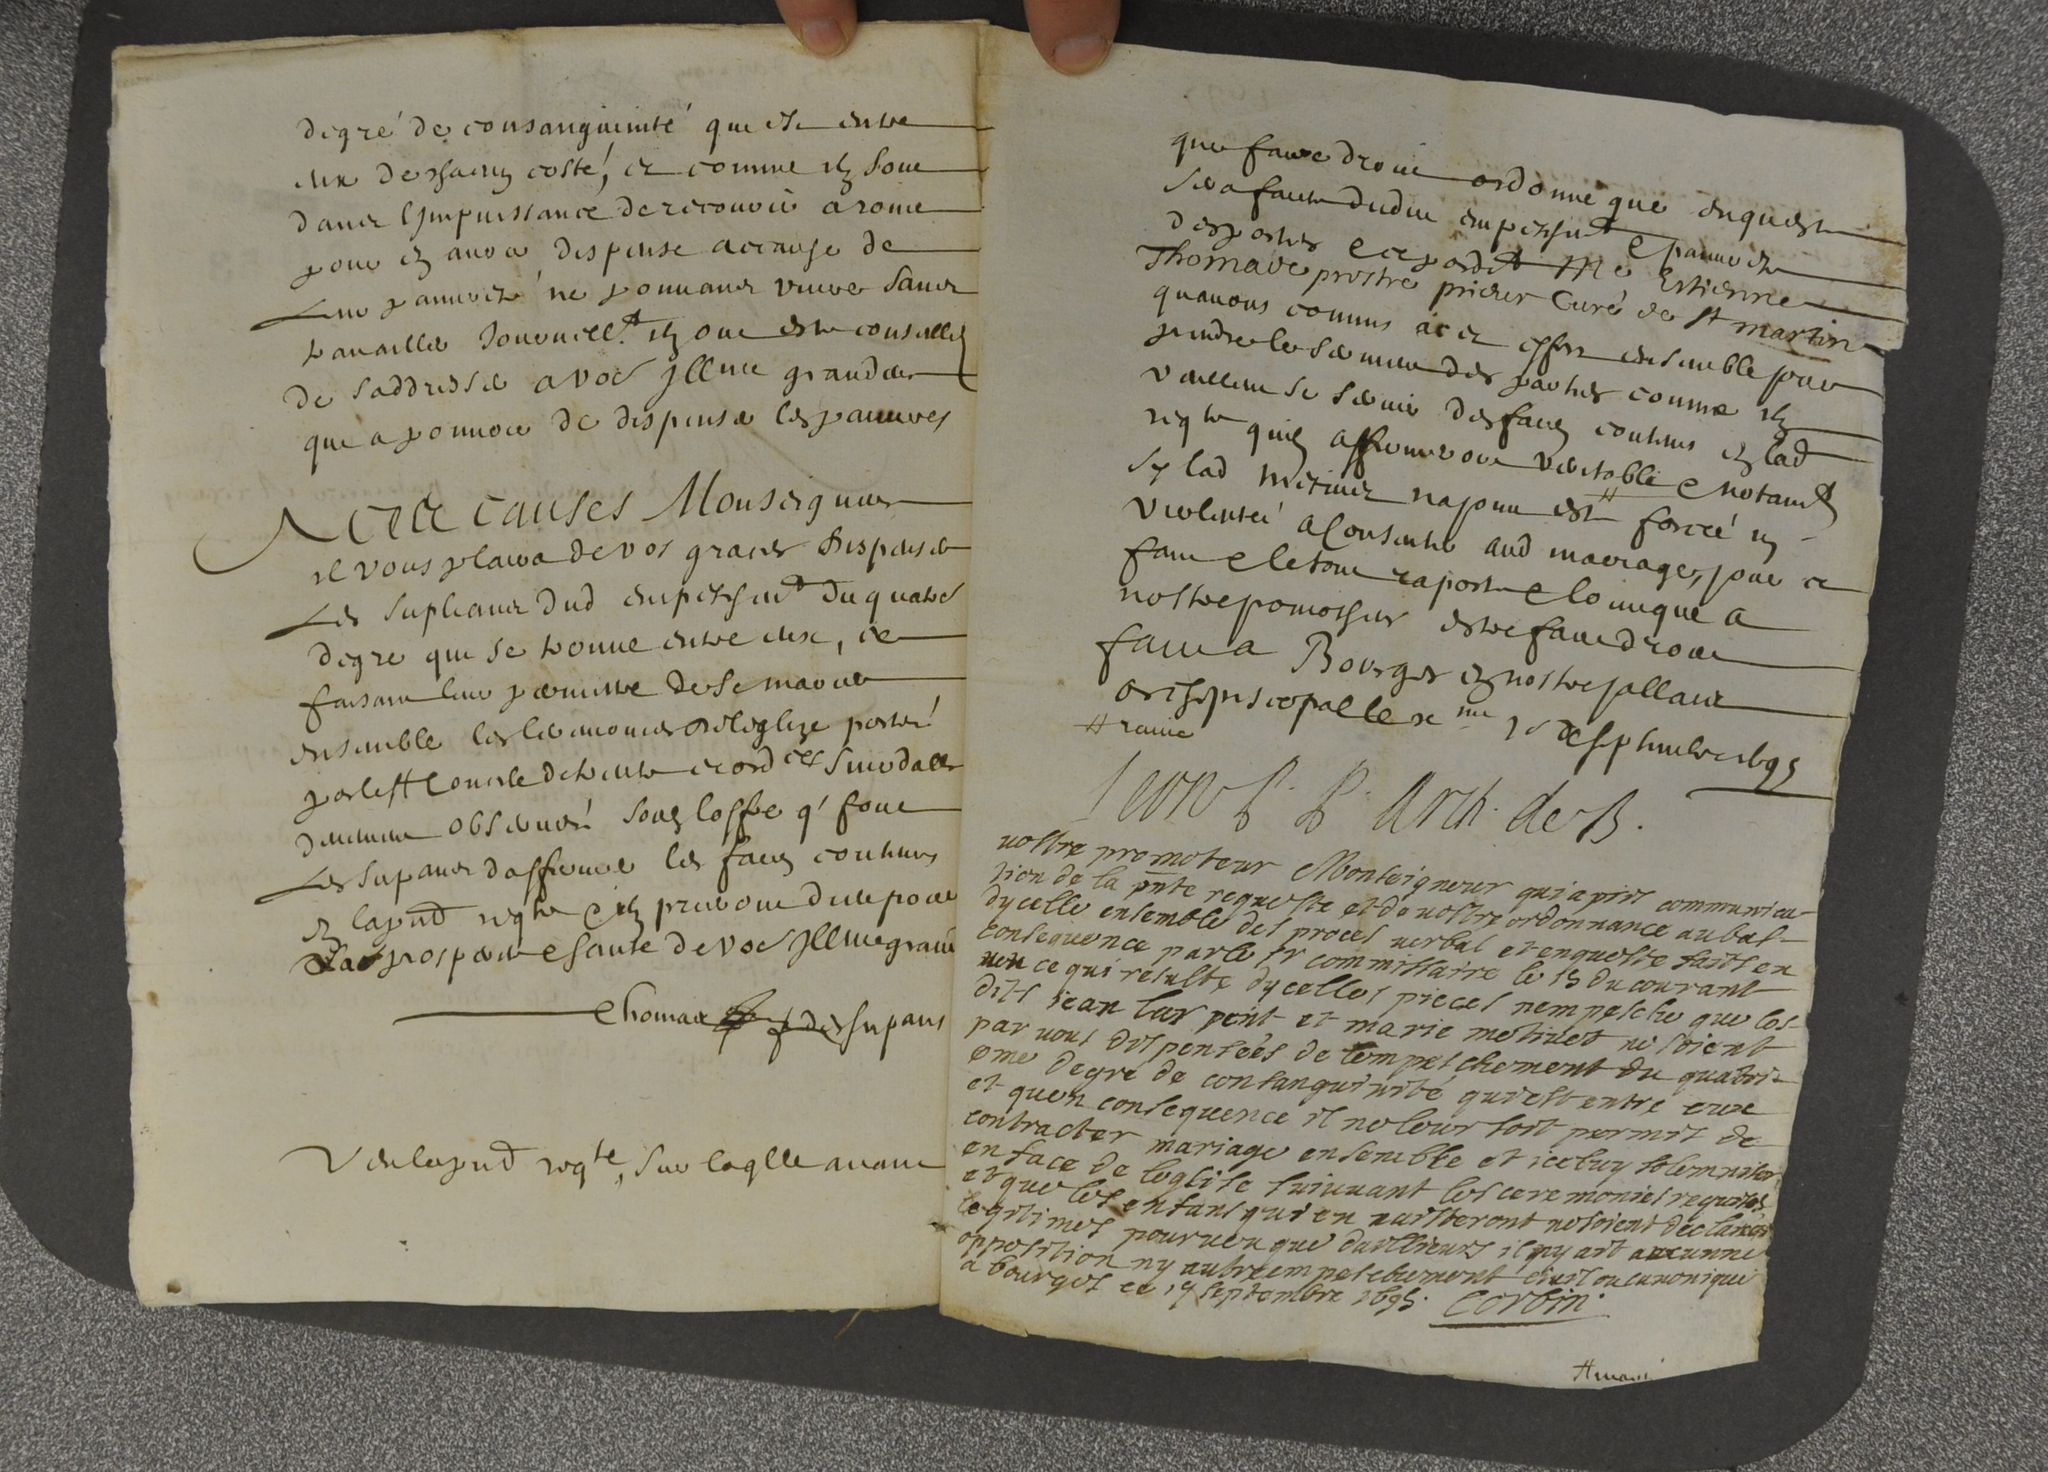 degré de consanguinité qui est entre
eux de chacun costé, et comme ilz sont
dans l'Impuissance de recourir a rome
pour en avoir dispense a cause de
Leur pauvreté ne pouvant vivre sans
travailler Journellt. ilz ont esté conseillez
de s'addresser a vos Illme grandeur
qui a pouvoir de dispenser les pauvres
A CES CAUSES Monseigneur
il vous plaira de vos graces dispenser
Les suplians dud empeschemt du quatre
degre qui se trouve entre eux, ce
faisant leur permettre de se marier
ensemble les ceremonies de leglize portés
par le St Concile de trente et ordces sinodalles
observés soubz loffre q' font
Les supans d'affirmer les faitz contenus
en la pnte reqte et ilz priront dieu pour
La prosperité et santé de vos Illme grand
Thomas des supans
Veu la pnte reqte, sur laqlle avant
que faire droit ordonné que enqueste
sera faitte dudit empeschemt et pauvreté
des parties et ce pardt Me Estienne
Thomave prestre prieur Curé de St martin
qu'avons commis a cet effet ensemble pour
prendre le serment des parties comme ilz
veullent se servir des faitz contenus en lad
reqte qu'ilz affirmeront veritable et notamt
sy lad metiver na point esté forcée ny
violentée a Consentir aud mariage, pour ce
fait et le tout raporté et communiqué a
nostre promotheur estre fait droit
fait a Bourges en nostre pallais
archiepiscopalle 1695
# raturé
Leon P. P. Arch. de B.
vostre promoteur Monseigneur qui a pris communica-
tion de la pnte requeste et de vostre ordonnance au bas
dycelle ensemble des proces verbal et enqueste faits en
consequence par le sr commissaire le 15 du courant
veu ce qui resulte dycelles pieces nempesche que les-
dits jean et marie metiver ne soient
par vous dispensées de lempeschement du quatri-
eme degré de consanguinité qui est entre eux
et quen consequence il ne leur soit permis de
contracter mariage ensemble et iceluy solemniser
en face de leglise suivant les ceremonies requises
et que les enfans qui en naisteront ne soient declarés
legitimes pourveu que dailleurs il ny ait aucunne
opposition ny autre empeschement civil ou canonique
a bourges ce 19 septembre 1695. Corbin